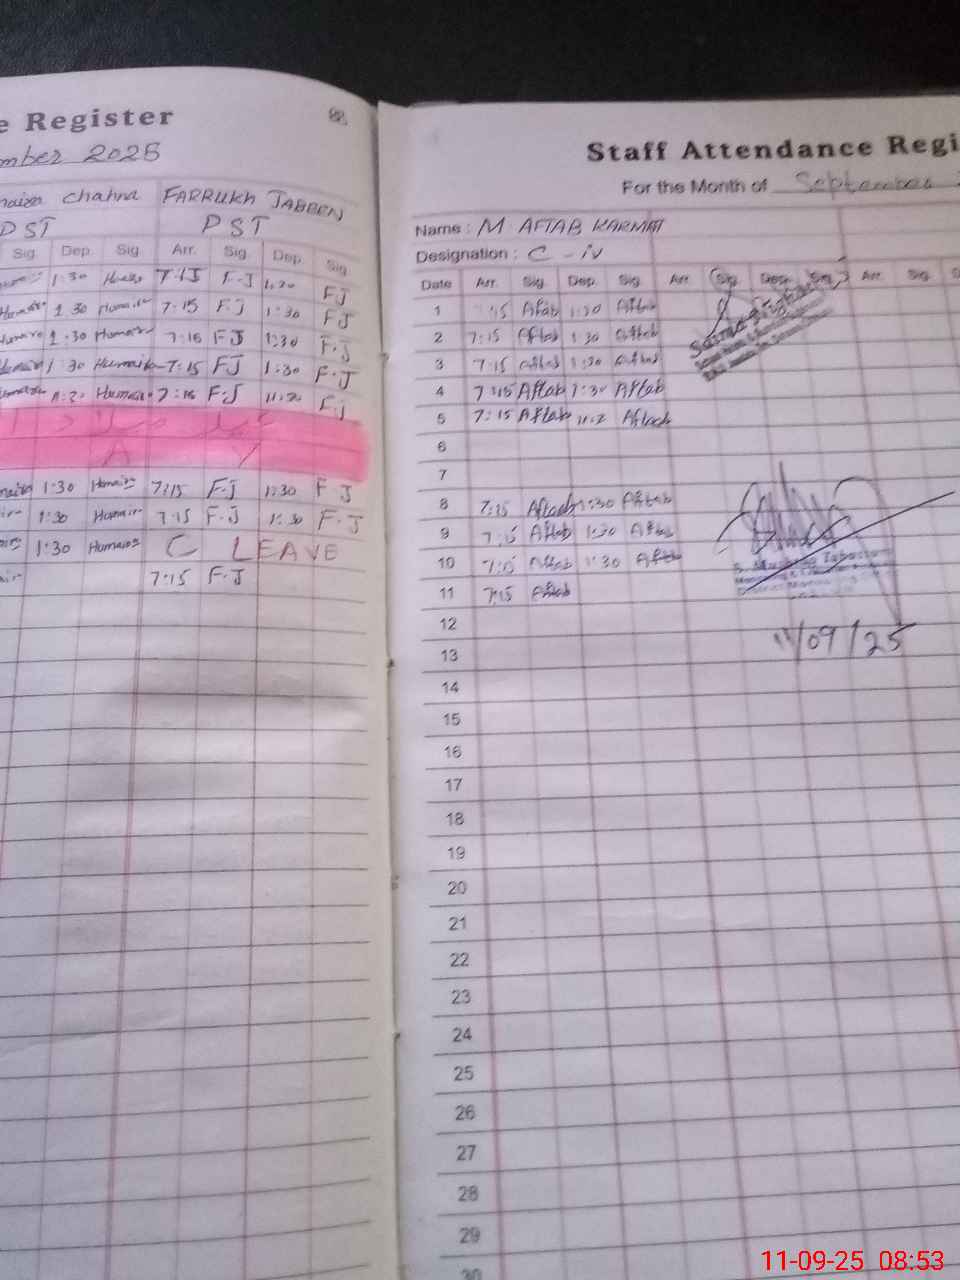 e Register
mber 2025
maira Chahna FARRUKH JABEEN
PST PST
Sig. Dep. Sig. Arr. Sig. Dep. Sig.
1:30 7:15 F.J 1:30 FJ
1:30 Humaira 7:15 F.J 1:30 FJ
1:30 Humaira 7:15 FJ 1:30 F.J
1:30 Humaira 7:15 FJ 1:30 F.J
Humaira 7:15 F.J 11:30 F.J
عید میلاد
A Y
1:30 Humaira 7:15 F.J 1:30 F.J
1:30 Humair 7:15 F.J 1:30 F.J
1:30 Humaira C LEAVE
7:15 F.J
Staff Attendance Regi
For the Month of September
Name : M AFTAB KARMAT
Designation : C - iv
Date Arr. Sig. Dep. Sig. Arr. Sig. Dep. Sig. Arr. Sig.
1 :15 Aftab 1:30 Aftab
2 7:15 Aftab 1:30 Aftab
3 7:15 Aftab 1:30 Aftab
4 7:15 Aftab 1:30 Aftab
5 7:15 Aftab 11:2 Aftab
6
7
8 7:15 Aftab 1:30 Aftab
9 7:15 Aftab 1:30 Aftab
10 7:15 Aftab 1:30 Aftab
11 7:15 Aftab
12
11/09/25
13
14
15
16
17
18
19
20
21
22
23
24
25
26
27
28
29
30
11-09-25 08:53